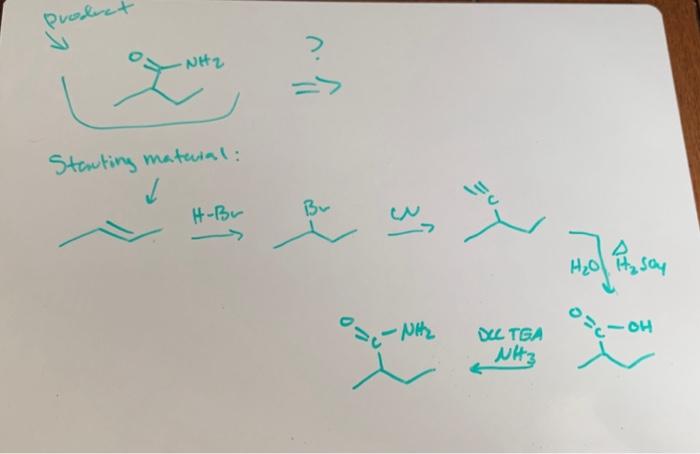 Product
O NH2
?
Starting material:
H-Br
Br
CN
N
C
H2O Δ H2SO4
O C-NH2
DCC TEA
NH3
O C-OH